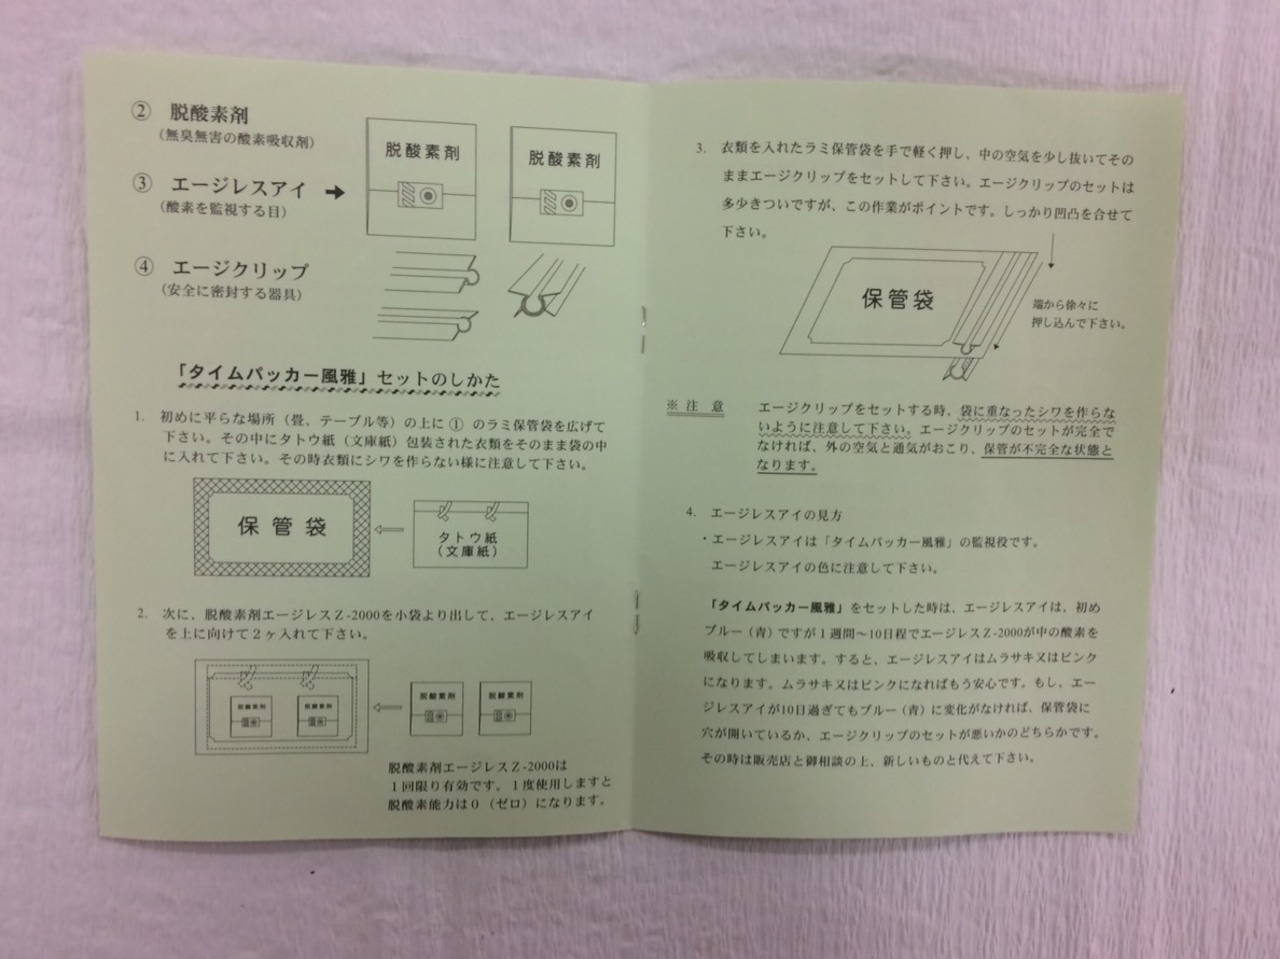 ② 脱酸素剤
（無臭無害の酸素吸収剤）
③ エージレスアイ ➡
（酸素を監視する目）
脱酸素剤
脱酸素剤
④ エージクリップ
（安全に密封する器具）
「タイムパッカー風雅」セットのしかた
1. 初めに平らな場所（畳、テーブル等）の上に ① のラミ保管袋を広げて
下さい。その中にタトウ紙（文庫紙）包装された衣類をそのまま袋の中
に入れて下さい。その時衣類にシワを作らない様に注意して下さい。
保管袋
タトウ紙
（文庫紙）
2. 次に、脱酸素剤エージレスＺ-2000を小袋より出して、エージレスアイ
を上に向けて２ヶ入れて下さい。
脱酸素剤
脱酸素剤
脱酸素剤
脱酸素剤
脱酸素剤エージレスＺ-2000は
１回限り有効です。１度使用しますと
脱酸素能力は０（ゼロ）になります。
3. 衣類を入れたラミ保管袋を手で軽く押し、中の空気を少し抜いてその
ままエージクリップをセットして下さい。エージクリップのセットは
多少きついですが、この作業がポイントです。しっかり凹凸を合せて
下さい。
保管袋
端から徐々に
押し込んで下さい。
※ 注 意
エージクリップをセットする時、袋に重なったシワを作らな
いように注意して下さい。エージクリップのセットが完全で
なければ、外の空気と通気がおこり、保管が不完全な状態と
なります。
4. エージレスアイの見方
・エージレスアイは「タイムパッカー風雅」の監視役です。
エージレスアイの色に注意して下さい。
「タイムパッカー風雅」をセットした時は、エージレスアイは、初め
ブルー（青）ですが１週間～10日程でエージレスＺ-2000が中の酸素を
吸収してしまいます。すると、エージレスアイはムラサキ又はピンク
になります。ムラサキ又はピンクになればもう安心です。もし、エー
ジレスアイが10日過ぎてもブルー（青）に変化がなければ、保管袋に
穴が開いているか、エージクリップのセットが悪いかのどちらかです。
その時は販売店と御相談の上、新しいものと代えて下さい。